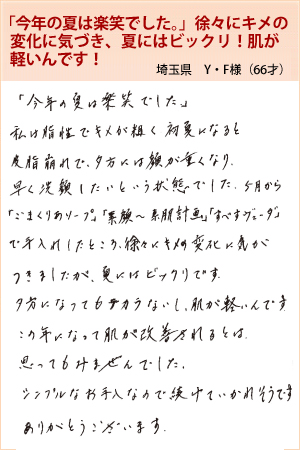 「今年の夏は楽笑でした。」徐々にキメの
変化に気づき、夏にはビックリ！肌が
軽いんです！
埼玉県　Y・F様（66才）
「今年の夏は楽笑でした。」
私は脂性でキメが粗く初夏になると
皮脂崩れで、夕方には顔が重くなり、
早く洗顔したいという状態でした。5月から
「ごまくりあソープ」「素顔〜素肌計画」「すべすヴェーダ」
で手入れしたところ、徐々にキメの変化に気が
つきましたが、夏にはビックリです。
夕方になってもテカらないし、肌が軽いんです
この年になって肌が改善されるとは、
思ってもみませんでした。
シンプルなお手入なので続けていかれそうです
ありがとうございます。